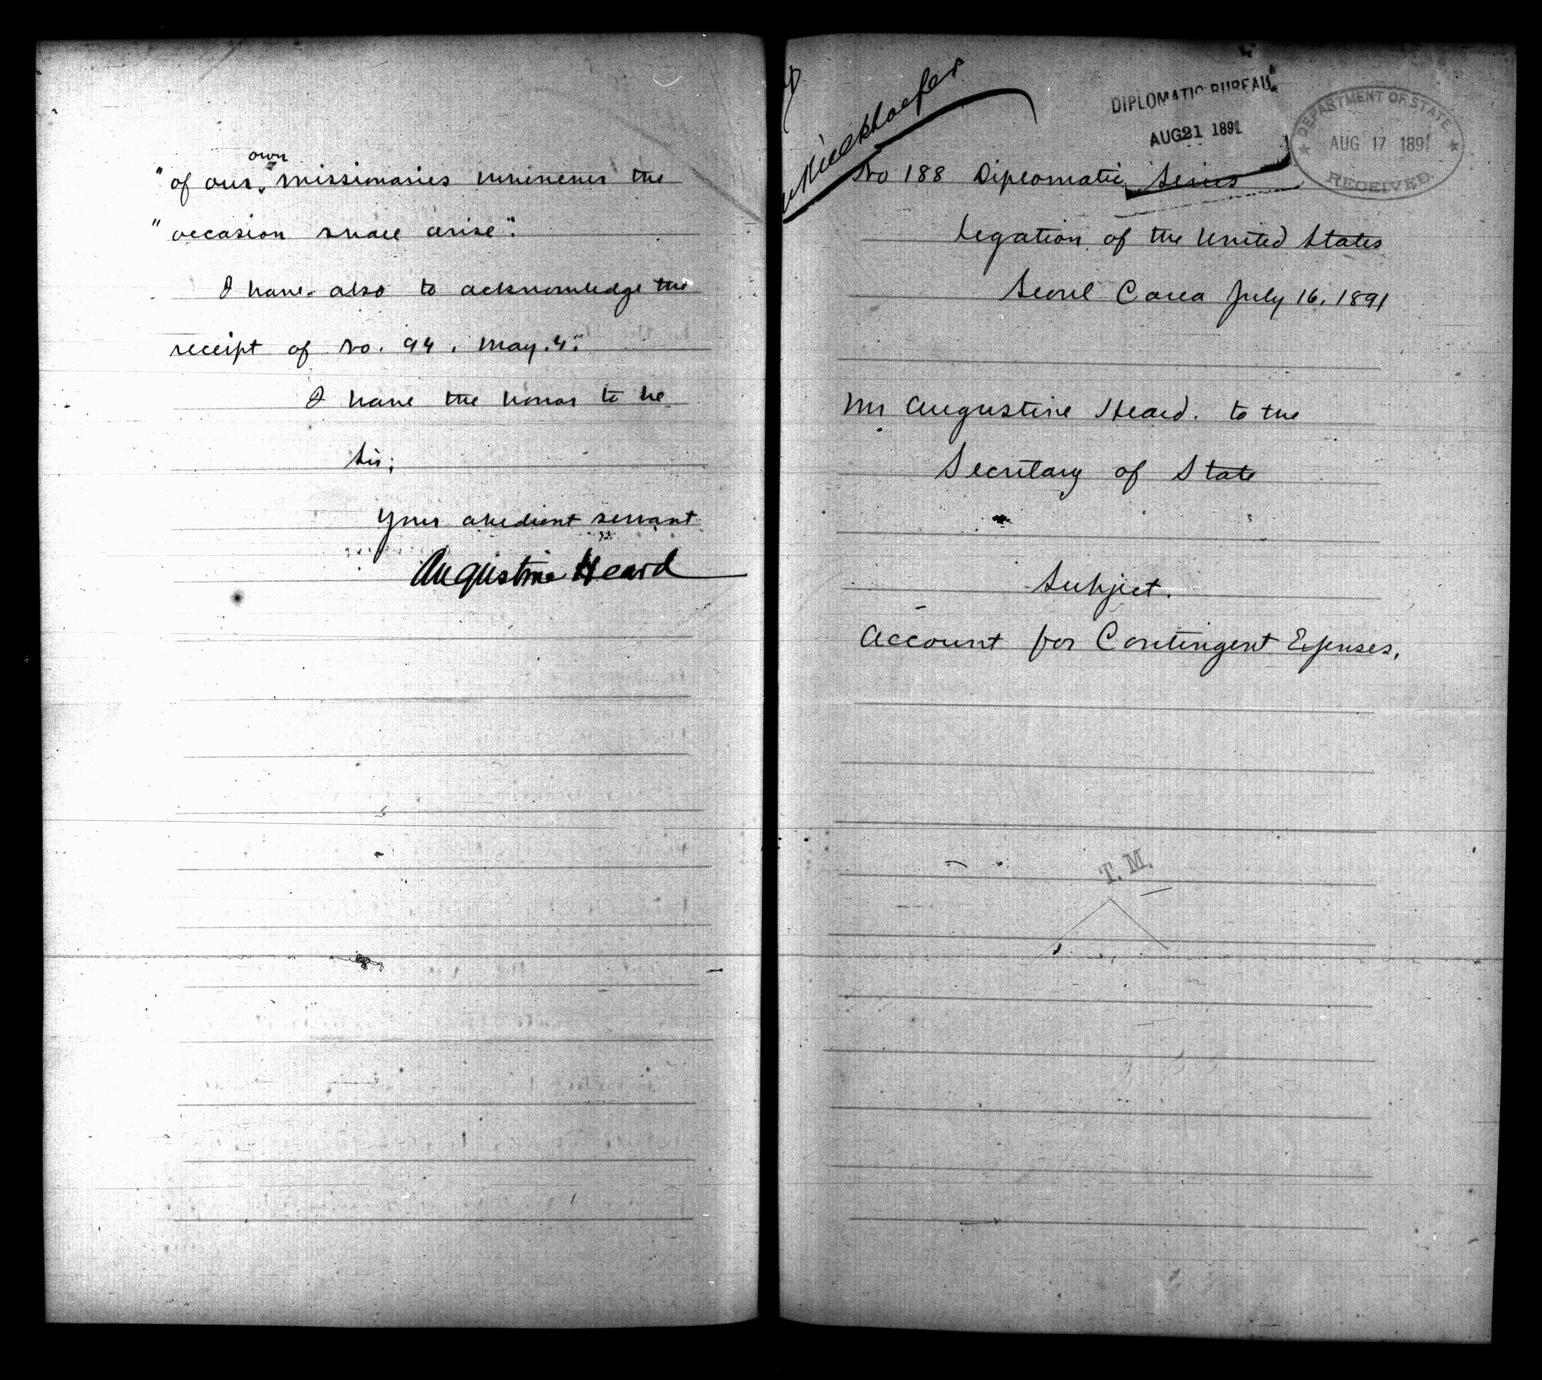 own
"of our missionaries whenever the
"occasion shall arise".
I have also to acknowledge the
receipt of No. 94. May. 4.
I have the honor to be
Sir;
Your obedient servant
Augustine Heard
DIPLOMATIC BUREAU
AUG 21 1891
DEPARTMENT OF STATE
AUG 17 1891
RECEIVED
No 188 Diplomatic Series
Legation of the United States
Seoul Corea July 16. 1891
Mr Augustine Heard. to the
Secretary of State
Subject.
Account for Contingent Expenses.
T. M.